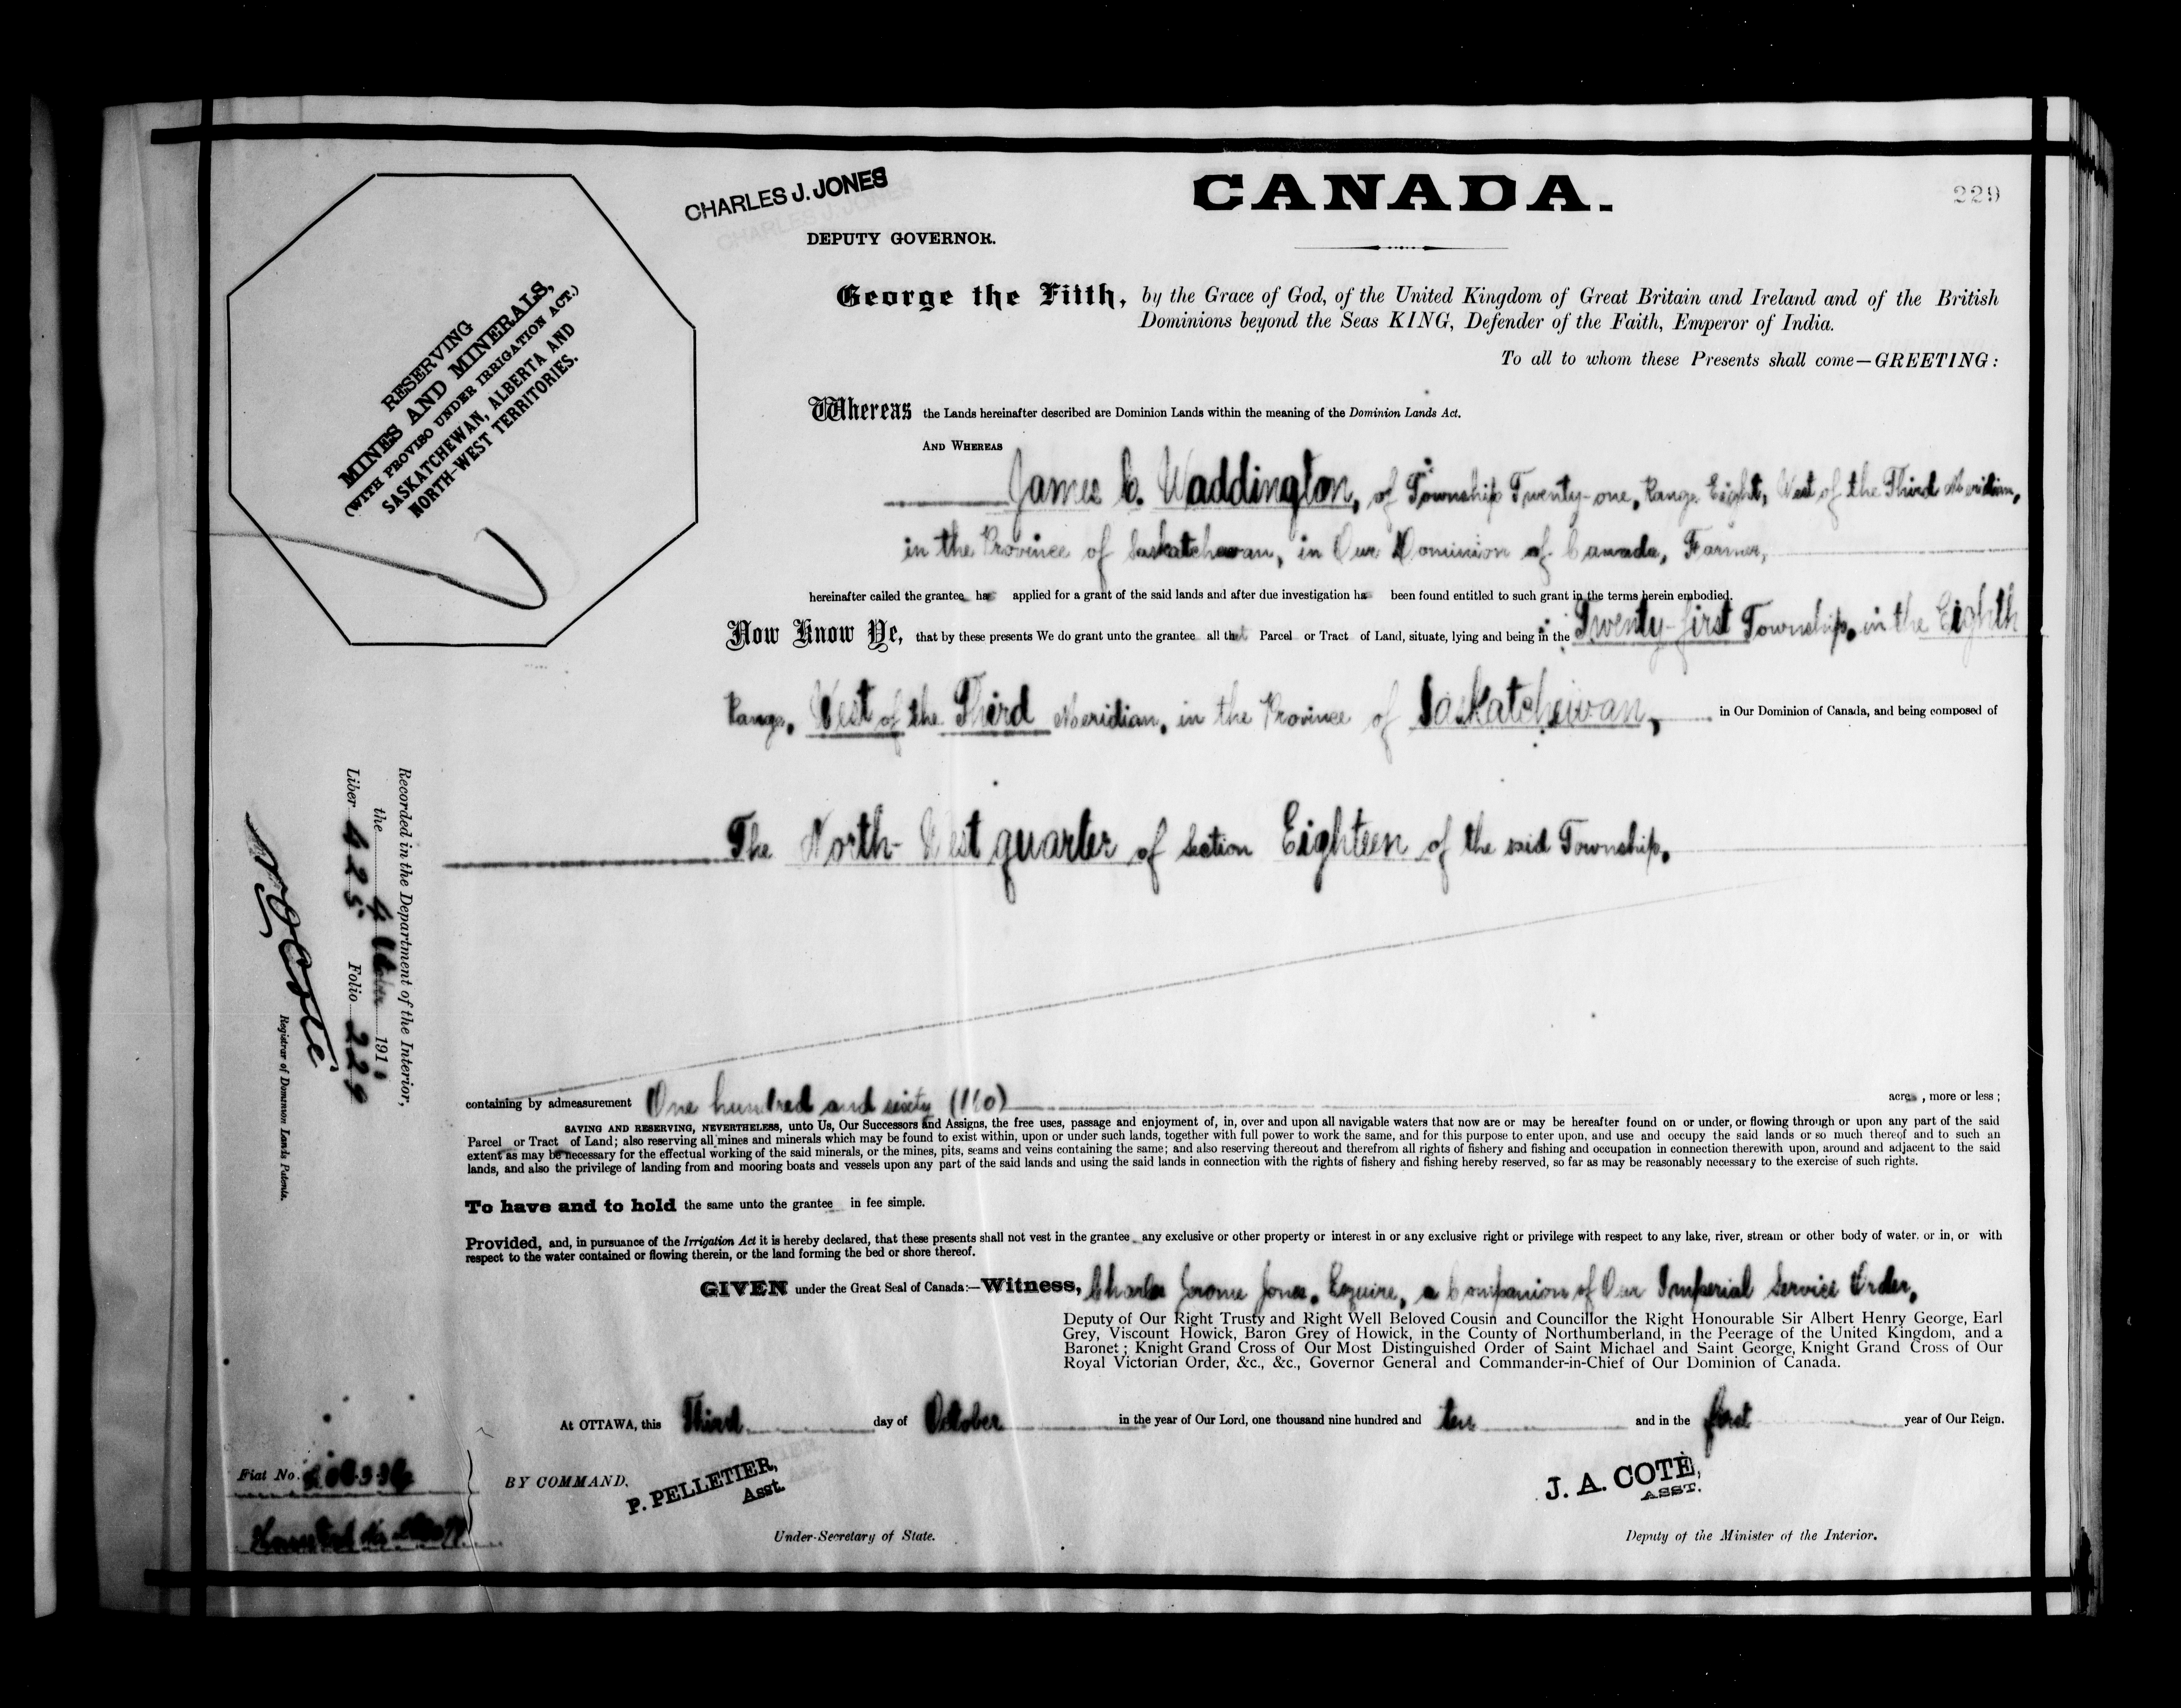 CHARLES J. JONES
DEPUTY GOVERNOR.
CANADA.
229
RESERVING
MINES AND MINERALS,
(WITH PROVISO UNDER IRRIGATION ACT.)
SASKATCHEWAN, ALBERTA AND
NORTH-WEST TERRITORIES.
George the Fifth, by the Grace of God, of the United Kingdom of Great Britain and Ireland and of the British
Dominions beyond the Seas KING, Defender of the Faith, Emperor of India.
To all to whom these Presents shall come—GREETING:
Whereas the Lands hereinafter described are Dominion Lands within the meaning of the Dominion Lands Act.
AND WHEREAS
James C. Waddington, of Township Twenty-one, Range Eight, West of the Third Meridian,
in the Province of Saskatchewan, in Our Dominion of Canada, Farmer,
hereinafter called the grantee has applied for a grant of the said lands and after due investigation has been found entitled to such grant in the terms herein embodied.
Now Know Ye, that by these presents We do grant unto the grantee all that Parcel or Tract of Land, situate, lying and being in the Twenty-first Township, in the Eighth
Range, West of the Third Meridian, in the Province of Saskatchewan, in Our Dominion of Canada, and being composed of
The North-West quarter of Section Eighteen of the said Township.
containing by admeasurement One hundred and sixty (160) acres, more or less;
SAVING AND RESERVING, NEVERTHELESS, unto Us, Our Successors and Assigns, the free uses, passage and enjoyment of, in, over and upon all navigable waters that now are or may be hereafter found on or under, or flowing through or upon any part of the said
Parcel or Tract of Land; also reserving all mines and minerals which may be found to exist within, upon or under such lands, together with full power to work the same, and for this purpose to enter upon, and use and occupy the said lands or so much thereof and to such an
extent as may be necessary for the effectual working of the said minerals, or the mines, pits, seams and veins containing the same; and also reserving thereout and therefrom all rights of fishery and fishing and occupation in connection therewith upon, around and adjacent to the said
lands, and also the privilege of landing from and mooring boats and vessels upon any part of the said lands and using the said lands in connection with the rights of fishery and fishing hereby reserved, so far as may be reasonably necessary to the exercise of such rights.
To have and to hold the same unto the grantee in fee simple.
Provided, and, in pursuance of the Irrigation Act it is hereby declared, that these presents shall not vest in the grantee any exclusive or other property or interest in or any exclusive right or privilege with respect to any lake, river, stream or other body of water. or in, or with
respect to the water contained or flowing therein, or the land forming the bed or shore thereof.
GIVEN under the Great Seal of Canada:—Witness, Charles Jerome Jones, Esquire, a Companion of Our Imperial Service Order,
Deputy of Our Right Trusty and Right Well Beloved Cousin and Councillor the Right Honourable Sir Albert Henry George, Earl
Grey, Viscount Howick, Baron Grey of Howick, in the County of Northumberland, in the Peerage of the United Kingdom, and a
Baronet; Knight Grand Cross of Our Most Distinguished Order of Saint Michael and Saint George, Knight Grand Cross of Our
Royal Victorian Order, &c., &c., Governor General and Commander-in-Chief of Our Dominion of Canada.
At OTTAWA, this Third day of October in the year of Our Lord, one thousand nine hundred and ten and in the first year of Our Reign.
BY COMMAND,
P. PELLETIER,
Asst.
Under-Secretary of State.
J. A. COTÉ,
ASST.
Deputy of the Minister of the Interior.
Recorded in the Department of the Interior,
the 4 October 191
Liber 425 Folio 229
N O Coté
Registrar of Dominion Lands Patents.
Fiat No.